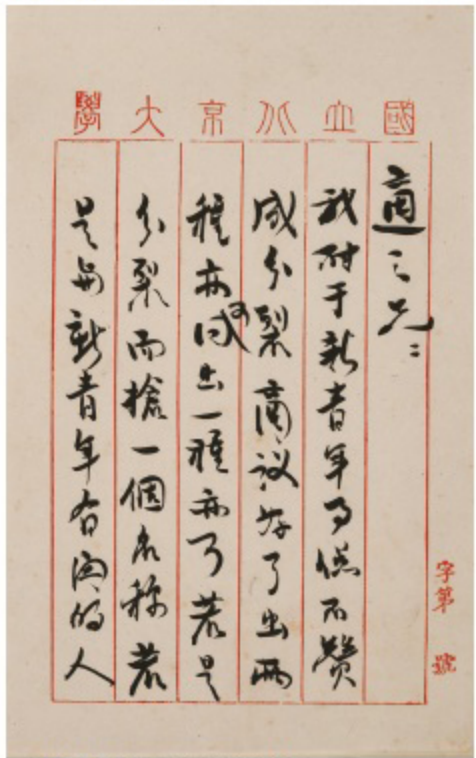 國立北京大學
適之兄：
我對于新青年事總不贊
成分裂商議好了出兩
種亦可出一種亦可若是
分裂而搶一個名稱若
是與新青年有関的人
字第　號